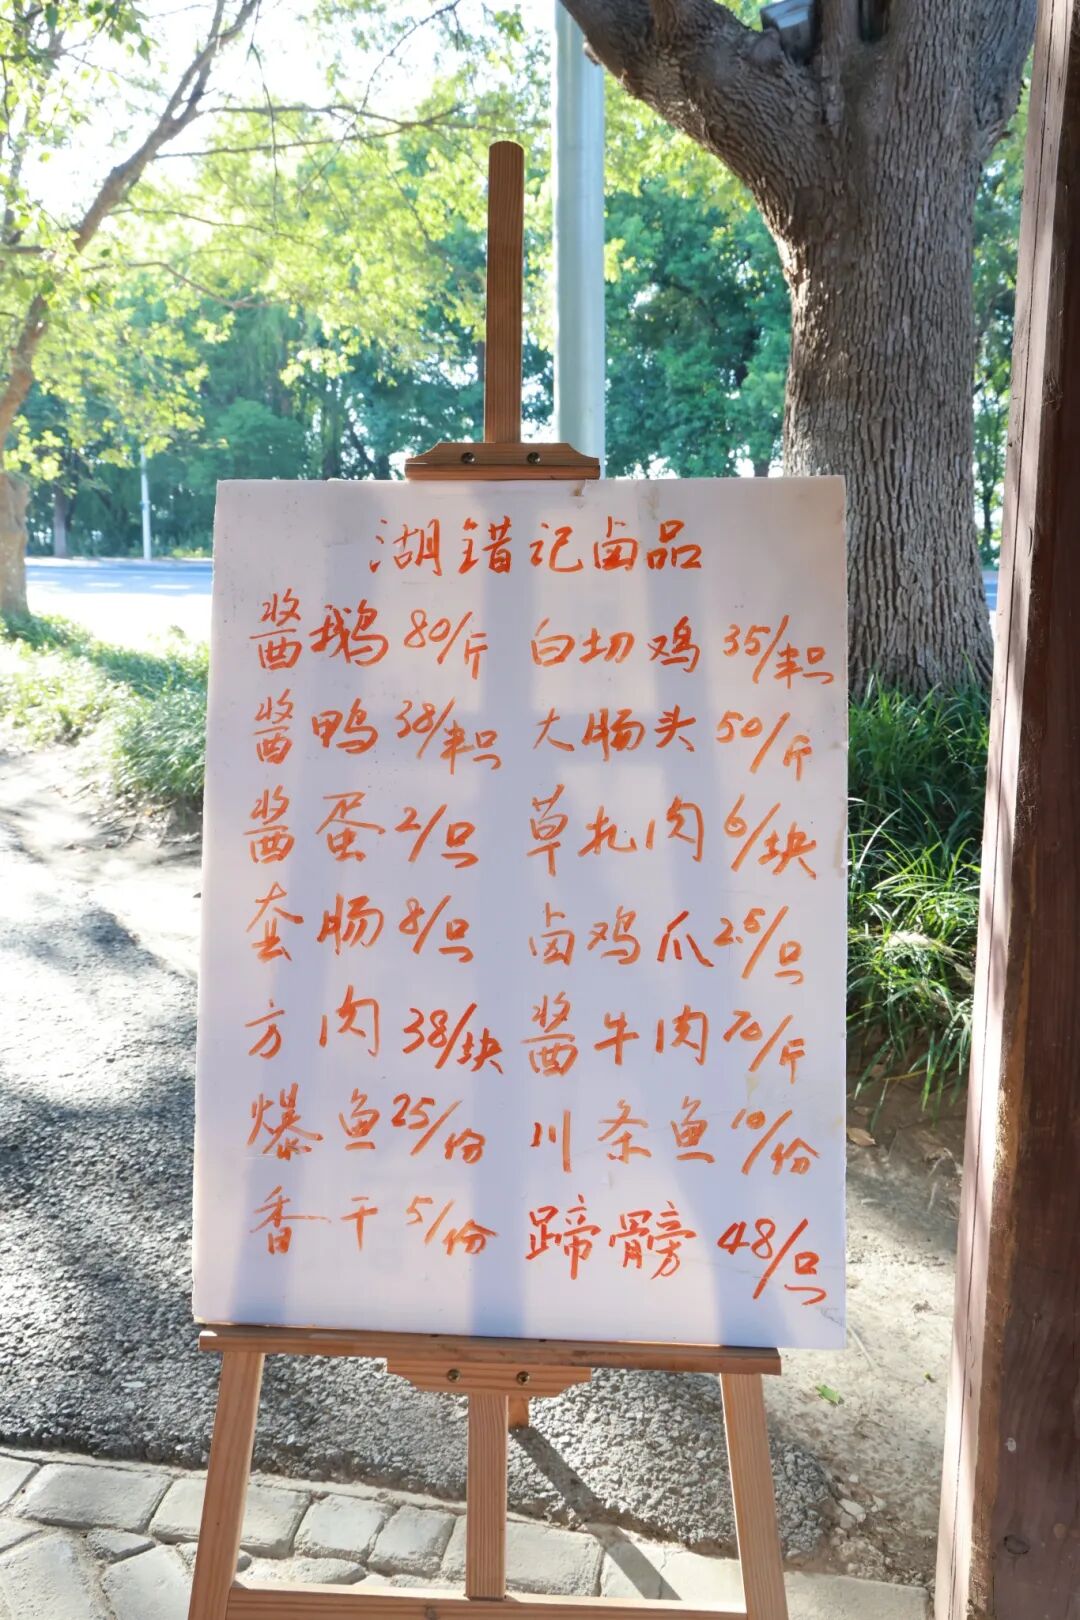 湖锴记卤品
酱鹅 80/斤 白切鸡 35/半只
酱鸭 38/半只 大肠头 50/斤
酱蛋 2/只 草扎肉 6/块
套肠 8/只 卤鸡爪 2.5/只
方肉 38/块 酱牛肉 70/斤
爆鱼 25/份 川条鱼 10/份
香干 5/份 蹄髈 48/只